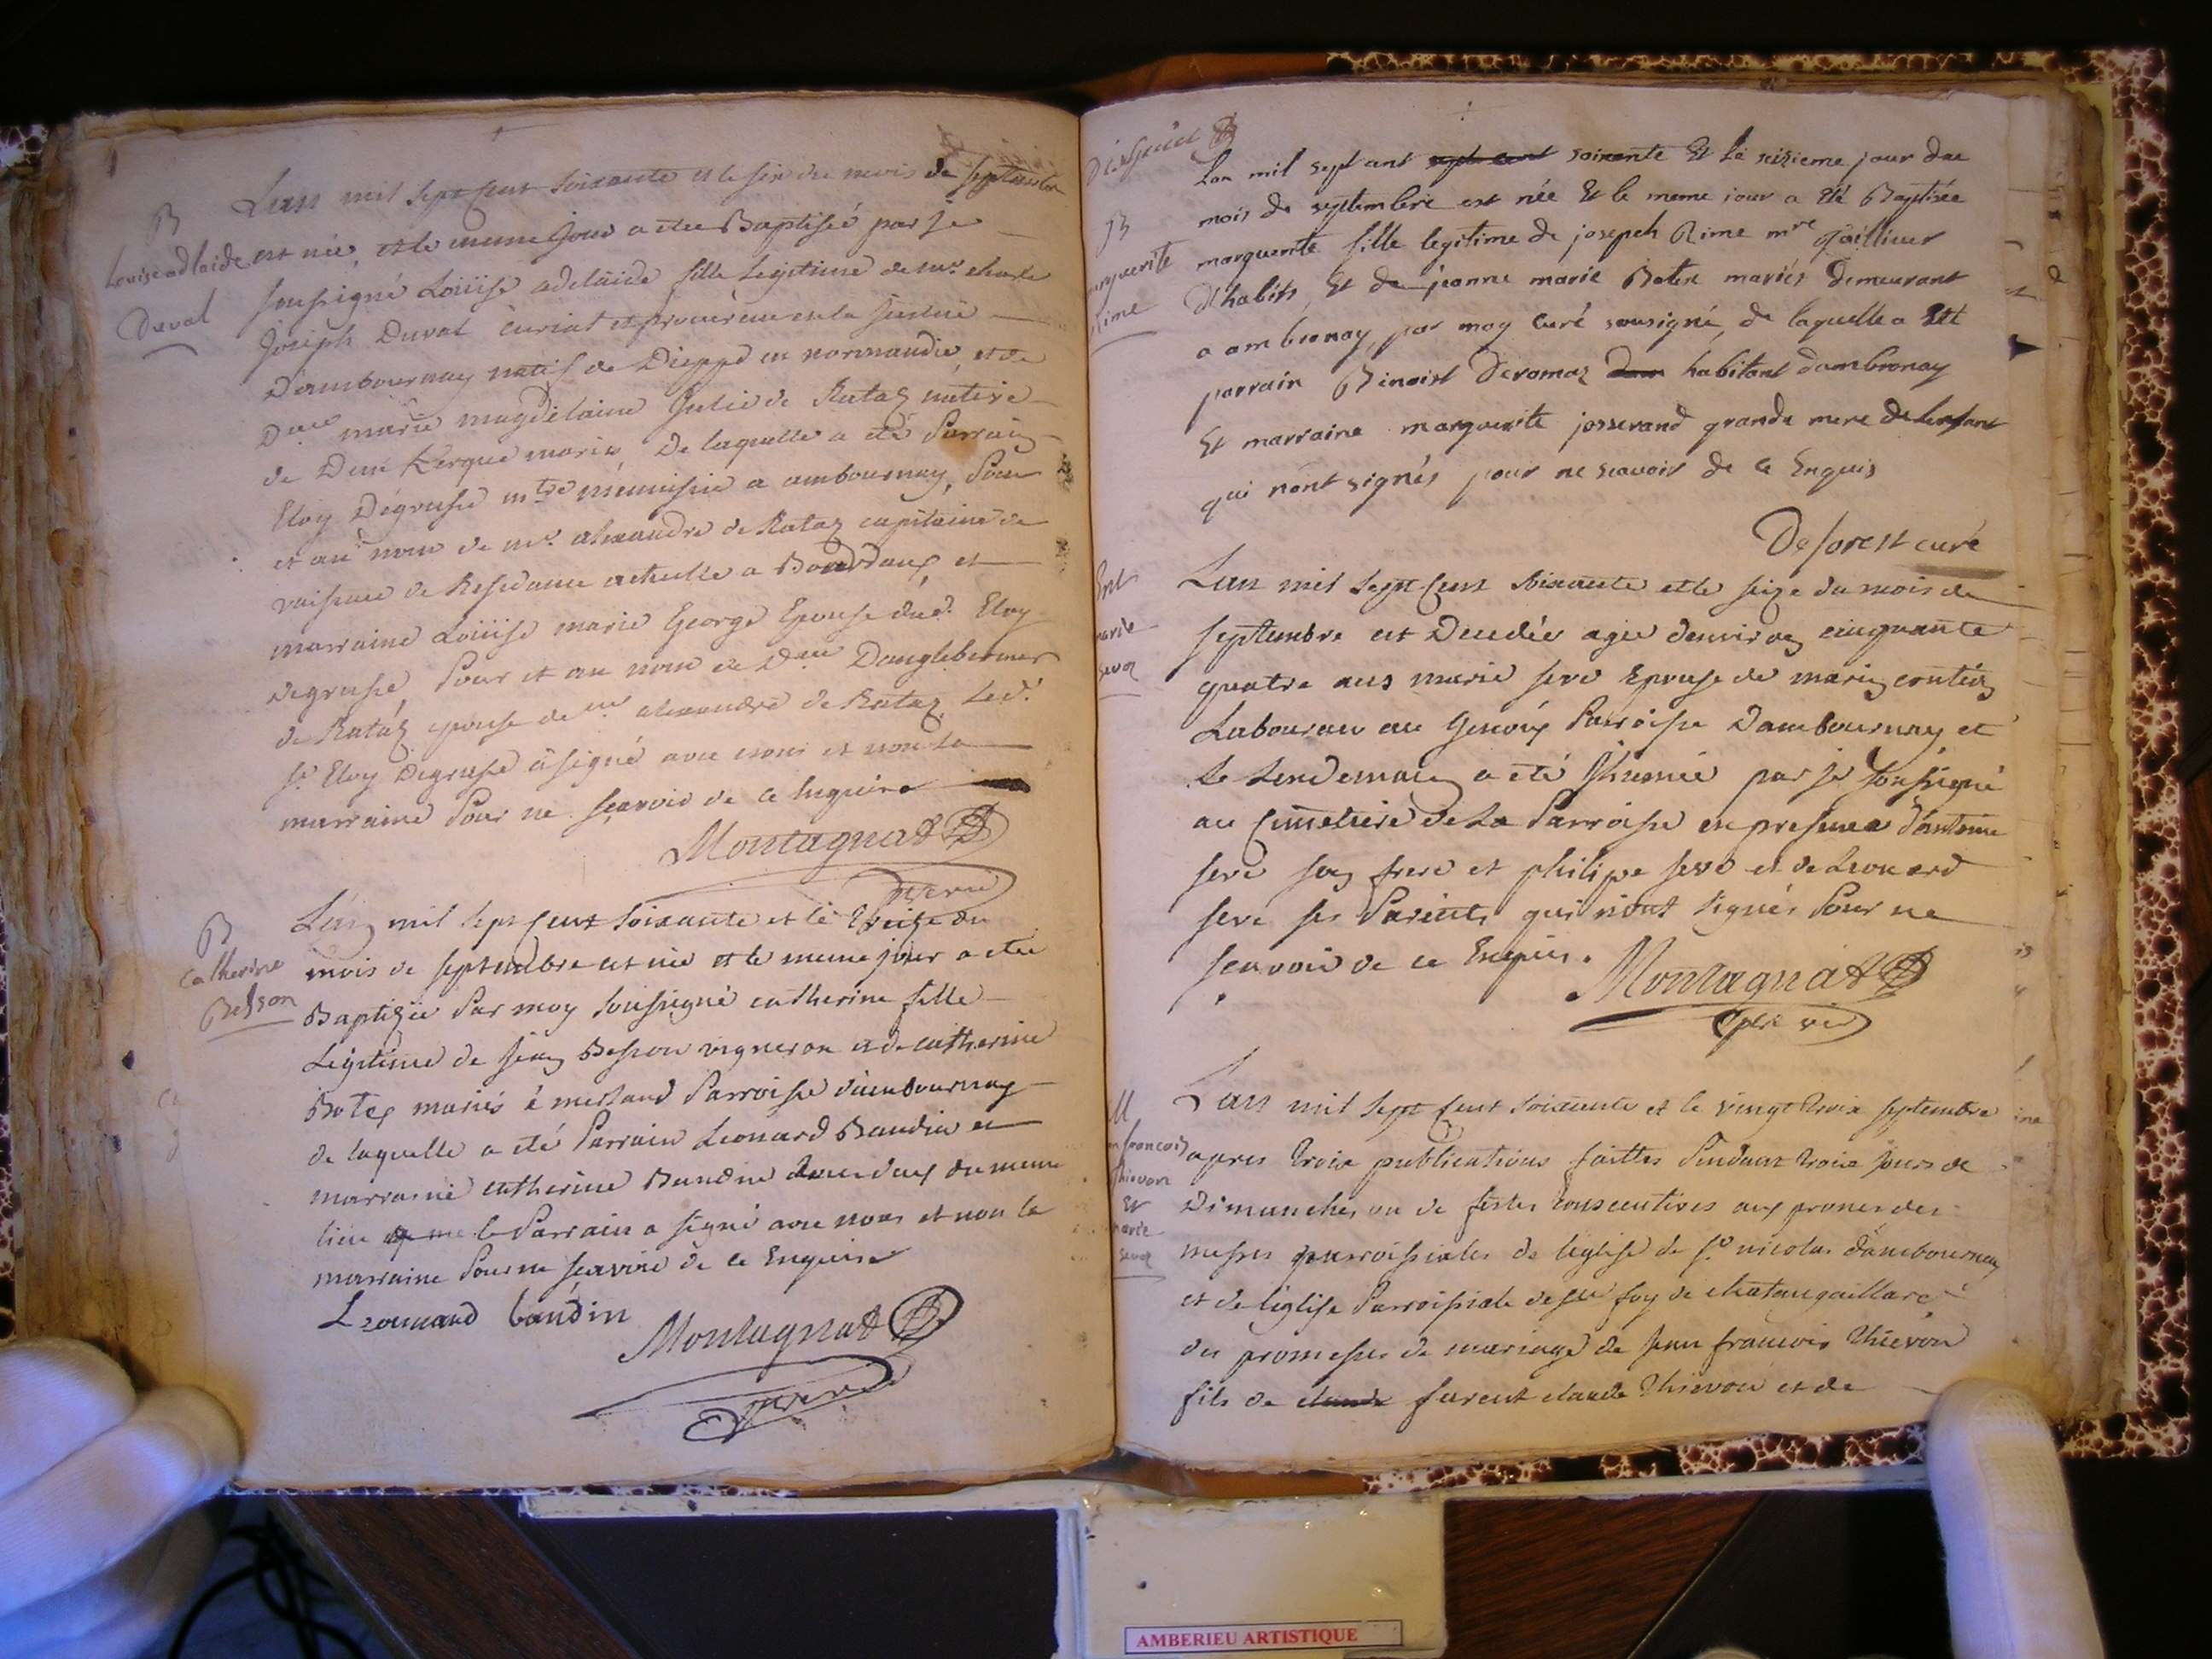 B
Louise adlaide
Duval
Lan mil sept cent soixante et le six du mois de septembre
est née, et le meme jour a etee Baptisée par je
soussigné Loüise adelaide fille Legitime de mr. charle
Joseph Duval curial et procureur en la justice
D'ambournay natif de Dieppe en normandie, et de
Dlle marie magdelaine Julie de Rataz native
de Dunkerque mariés De laquelle a eté Parrain
Eloy Dégrusse mtre menuisier a ambournay, Pour
et au nom de mr. alexandre de Rataz capitaine de
vaisseau de Residance actuelle a Bourdaux, et
marraine Loüise marie George Epouse dud. Eloy
degrusse, Pour et au nom de Dlle Danglebermer
de Ratáz epouse de mr alexandre de Rataz, Led.
sr. Eloy Degrusse a signé avec nous et non la
marraine Pour ne sçavoir de ce Enquise
Montagnat
vicaire
B
Catherine
Besson
Lan mil sept cent soixante et le treize du
mois de septembre est née et le meme jour a etee
Baptizée Par moy soussigné catherine fille
Legitime de jean Besson vigneron et de catherine
Botex mariés à merland Parroisse d'ambournay
de laquelle a eté Parrain Leonard Baudin et
marraine catherine Baudin tous deux du meme
lieu le Parrain a signé avec nous et non la
marraine Pour ne sçavoire de ce Enquise
Leonnard baudin
Montagnat
vicaire
B
marguerite
Rime
Lan mil sept cent sept cent soixante Et Le seizieme jour du
mois de septembre est née Et le meme jour a Eté Baptisée
marguerite fille legitime de josepeh Rime mre Tailleur
d'habits, Et de jeanne marie Botex mariés Demeurant
a ambronay, par moy Curé sousigné, de laquelle a Eté
parrain Binoist Devomaz habitant dambronay
Et marraine marguerite josserand grande mere de lenfant
qui n'ont signés pour ne scavoir de ce Enquis
Deforest curé
Ent
marie
seva
Lan mil sept cent soixante et le seize du mois de
septembre est Decedée agée d'environ cinquante
quatre ans marie seve Epouse de marin
Laboureur au Genoüy Parroisse Dambournay et
le Lendemain a eté Jnhumée par je soussigné
au Cimetiere de La Parroisse en presence d'antoine
seve son frere et philipe seve et de Leonard
seve ses Parents qui n'ont signés Pour ne
scavoir de ce Enquis.
Montagnat
vicaire
M
jean francois
thievon
Et
marie
seva
Lan mil sept cent soixante et le vingt trois septembre
apres trois publications faittes Pendant trois jours de
Dimanches ou de festes consecutives aux prones des
messes parroissiales de l'eglise de st nicolas d'ambournay
et de l'eglise Parroissiale de ste foy de chatangaillard
des promesses de mariage de jean francois thievon
fils de claude furent claude thievon et de
AMBERIEU ARTISTIQUE